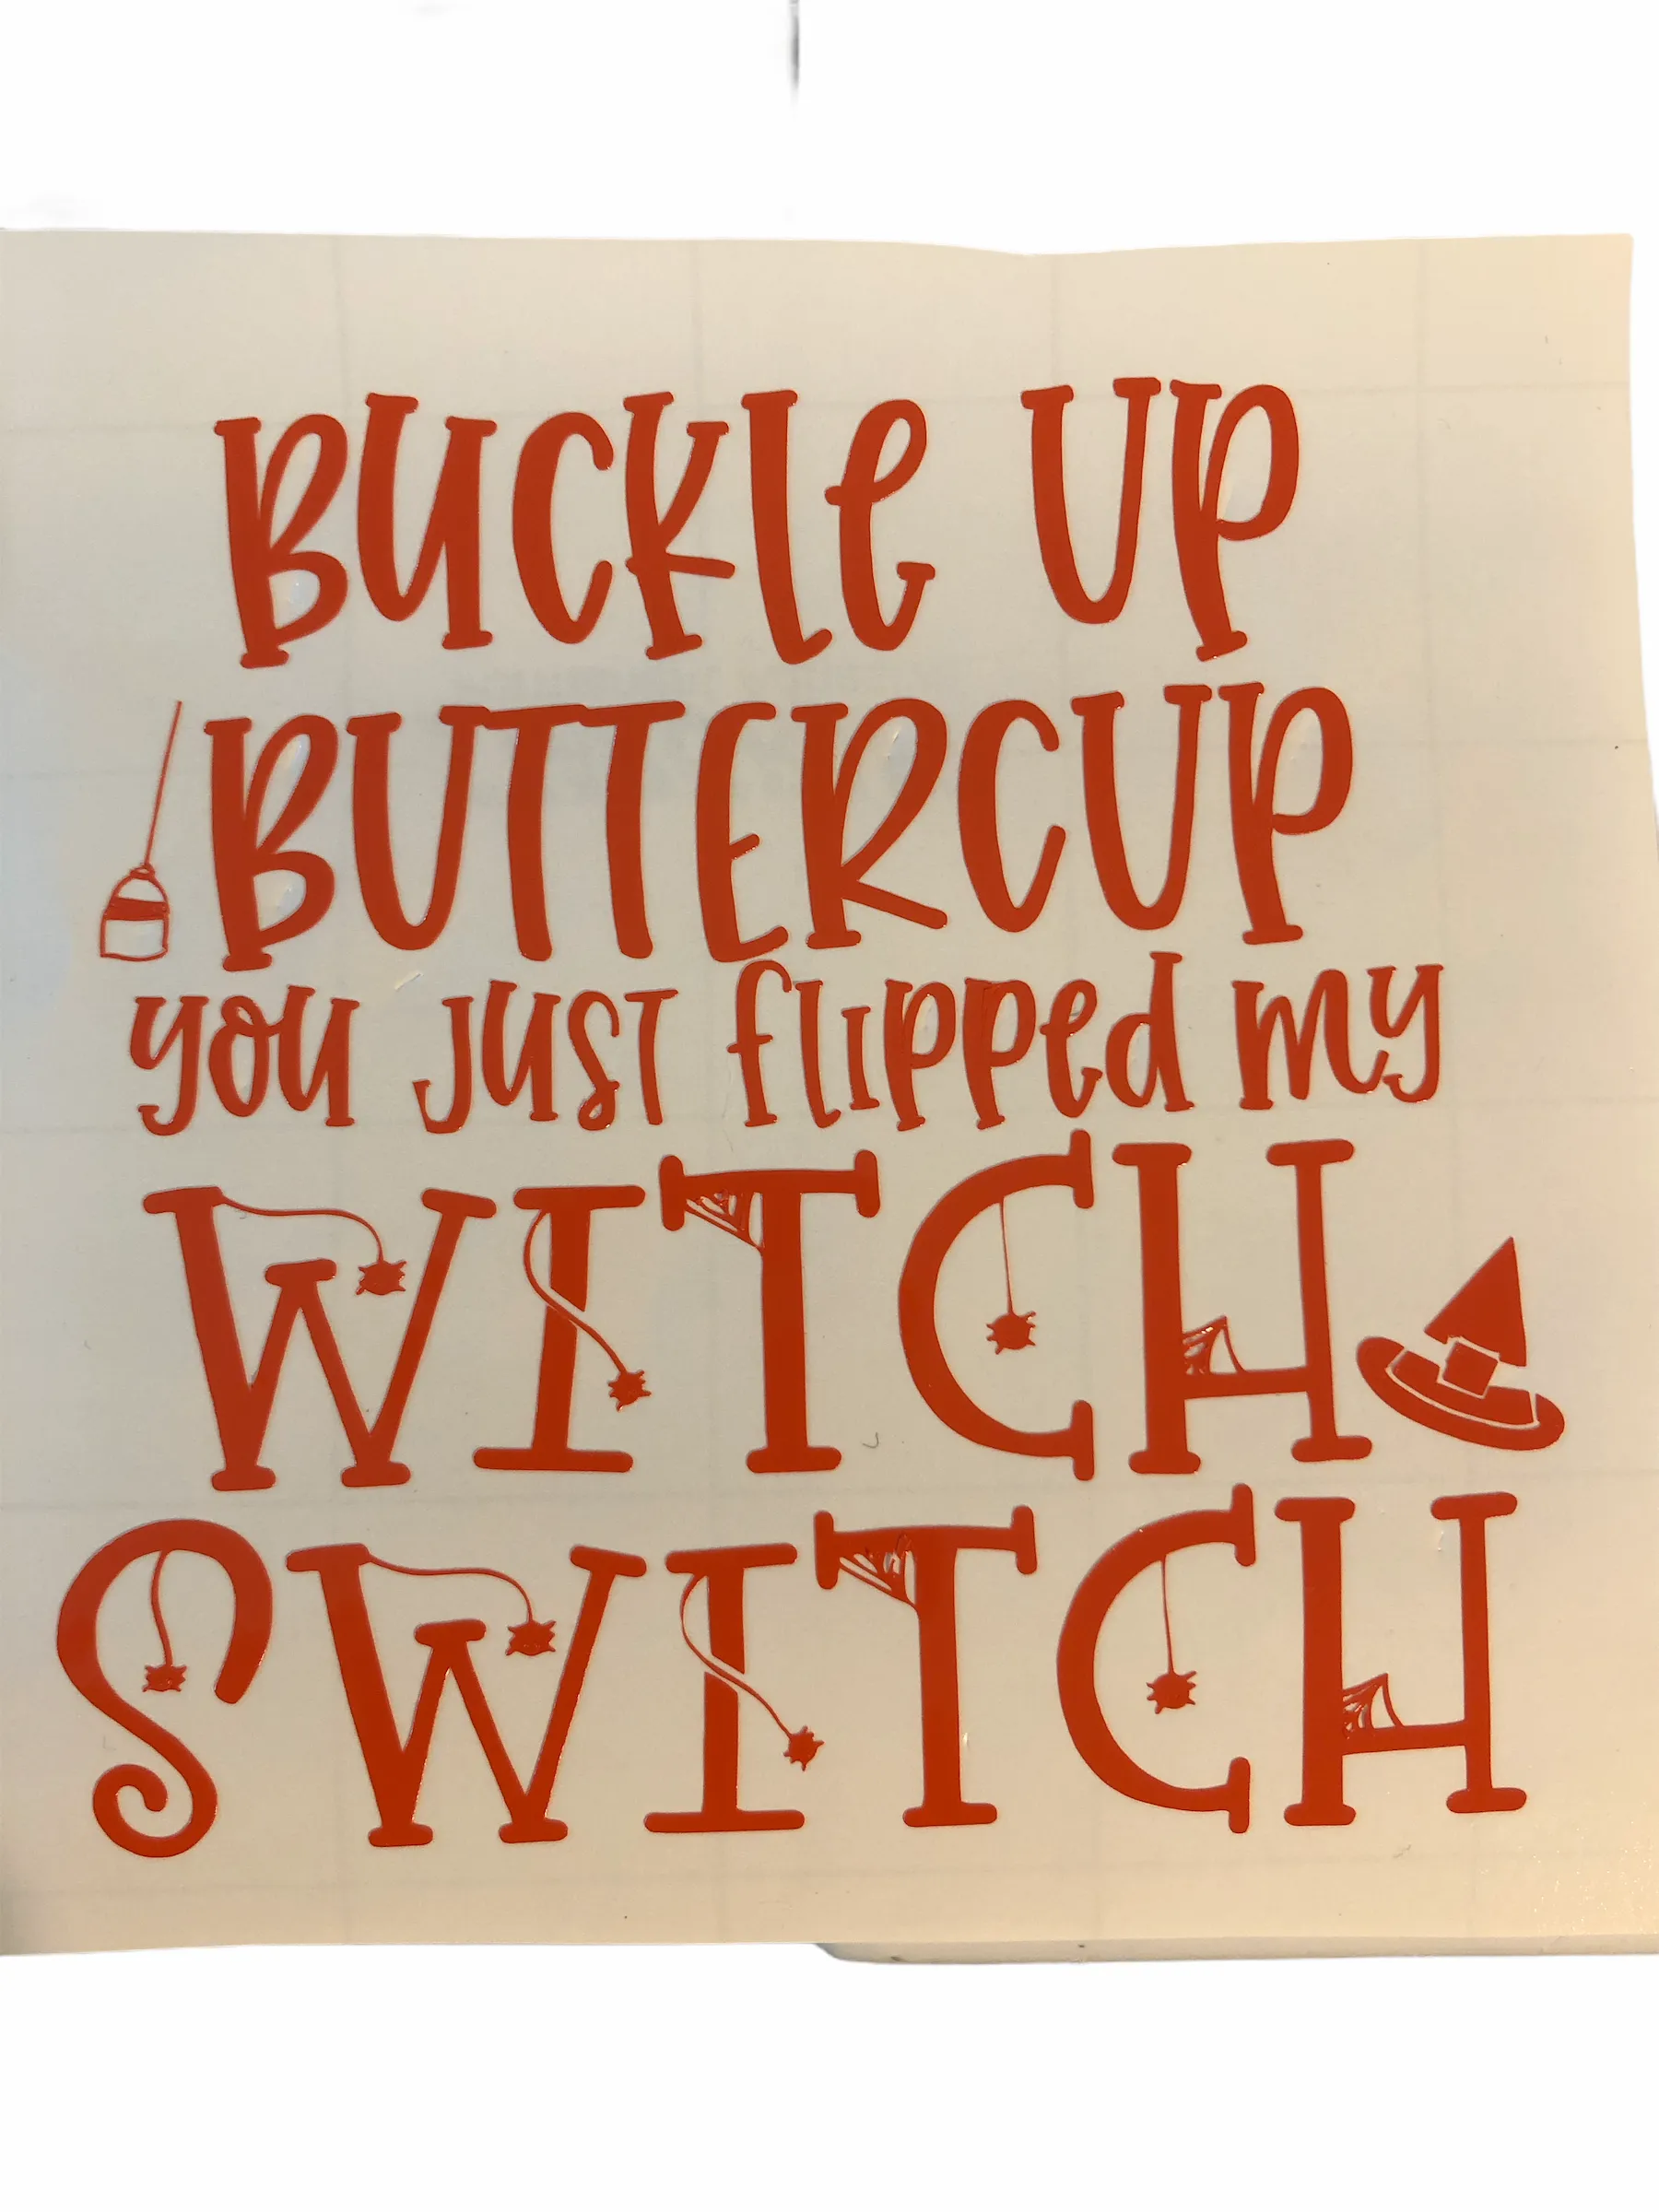 BUCKLE UP
BUTTERCUP
you just flipped my
WITCH
SWITCH